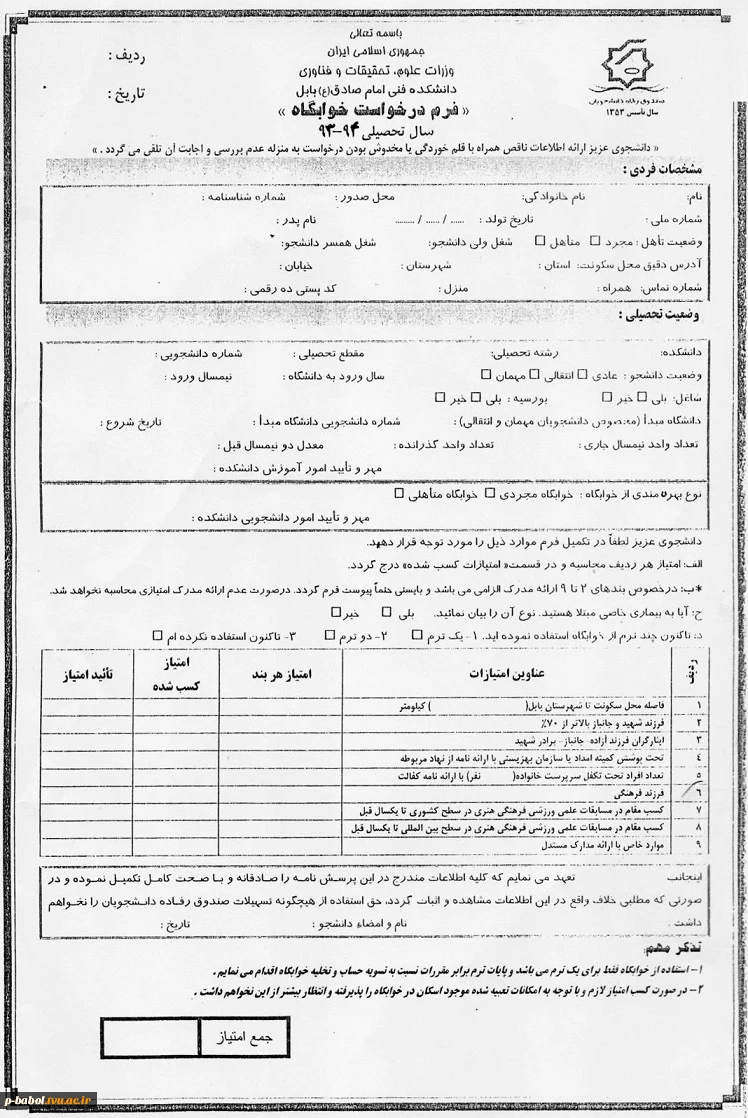 باسمه تعالی
جمهوری اسلامی ایران
وزرات علوم، تحقیقات و فناوری
دانشکده فنی امام صادق(ع) بابل
« فرم درخواست خوابگاه »
سال تحصیلی ۹۴-۹۳
ردیف :
تاریخ :
صندوق رفاه دانشجویان
سال تأسیس ۱۳۵۳
« دانشجوی عزیز ارائه اطلاعات ناقص همراه با قلم خوردگی یا مخدوش بودن درخواست به منزله عدم بررسی و اجابت آن تلقی می گردد . »
مشخصات فردی :
نام: نام خانوادگی: محل صدور : شماره شناسنامه :
شماره ملی : تاریخ تولد : ...... / ...... / ......... نام پدر :
وضعیت تأهل : مجرد □ متأهل □ شغل ولی دانشجو: شغل همسر دانشجو:
آدرس دقیق محل سکونت: استان : شهرستان : خیابان :
شماره تماس: همراه : منزل : کد پستی ده رقمی :
وضعیت تحصیلی :
دانشکده: رشته تحصیلی: مقطع تحصیلی : شماره دانشجویی :
وضعیت دانشجو : عادی □ انتقالی □ مهمان □ سال ورود به دانشگاه : نیمسال ورود :
شاغل: بلی □ خیر □ بورسیه : بلی □ خیر □
دانشگاه مبدأ (مخصوص دانشجویان مهمان و انتقالی) : شماره دانشجویی دانشگاه مبدأ : تاریخ شروع :
تعداد واحد نیمسال جاری : تعداد واحد گذرانده : معدل دو نیمسال قبل :
مهر و تأیید امور آموزش دانشکده :
نوع بهره مندی از خوابگاه : خوابگاه مجردی □ خوابگاه متأهلی □
مهر و تأیید امور دانشجویی دانشکده :
دانشجوی عزیز لطفاً در تکمیل فرم موارد ذیل را مورد توجه قرار دهید.
الف: امتیاز هر ردیف محاسبه و در قسمت« امتیازات کسب شده» درج گردد.
*ب: درخصوص بندهای ۲ تا ۹ ارائه مدرک الزامی می باشد و بایستی حتماً پیوست فرم گردد. درصورت عدم ارائه مدرک امتیازی محاسبه نخواهد شد.
ج: آیا به بیماری خاصی مبتلا هستید. نوع آن را بیان نمائید. بلی □ خیر □
د: تاکنون چند ترم از خوابگاه استفاده نموده اید. ۱- یک ترم □ ۲- دو ترم □ ۳- تاکنون استفاده نکرده ام □
ردیف عناوین امتیازات امتیاز هر بند امتیاز کسب شده تأئید امتیاز
۱ فاصله محل سکونت تا شهرستان بابل( ) کیلومتر
۲ فرزند شهید و جانباز بالاتر از ۷۰٪
۳ ایثارگران فرزند آزاده- جانباز- برادر شهید
۴ تحت پوشش کمیته امداد یا سازمان بهزیستی با ارائه نامه از نهاد مربوطه
۵ تعداد افراد تحت تکفل سرپرست خانواده( نفر) با ارائه نامه کفالت
۶ فرزند فرهنگی
۷ کسب مقام در مسابقات علمی ورزشی فرهنگی هنری در سطح کشوری تا یکسال قبل
۸ کسب مقام در مسابقات علمی ورزشی فرهنگی هنری در سطح بین المللی تا یکسال قبل
۹ موارد خاص با ارائه مدارک مستدل
اینجانب تعهد می نمایم که کلیه اطلاعات مندرج در این پرسش نامه را صادقانه و با صحت کامل تکمیل نموده و در
صورتی که مطلبی خلاف واقع در این اطلاعات مشاهده و اثبات گردد، حق استفاده از هیچگونه تسهیلات صندوق رفاه دانشجویان را نخواهم
داشت . نام و امضاء دانشجو : تاریخ :
تذکر مهم:
۱- استفاده از خوابگاه فقط برای یک ترم می باشد و پایان ترم برابر مقررات نسبت به تسویه حساب و تخلیه خوابگاه اقدام می نمایم .
۲- در صورت کسب امتیاز لازم و با توجه به امکانات تعبیه شده موجود اسکان در خوابگاه را پذیرفته و انتظار بیشتر از این نخواهم داشت .
جمع امتیاز
p-babol.tvu.ac.ir